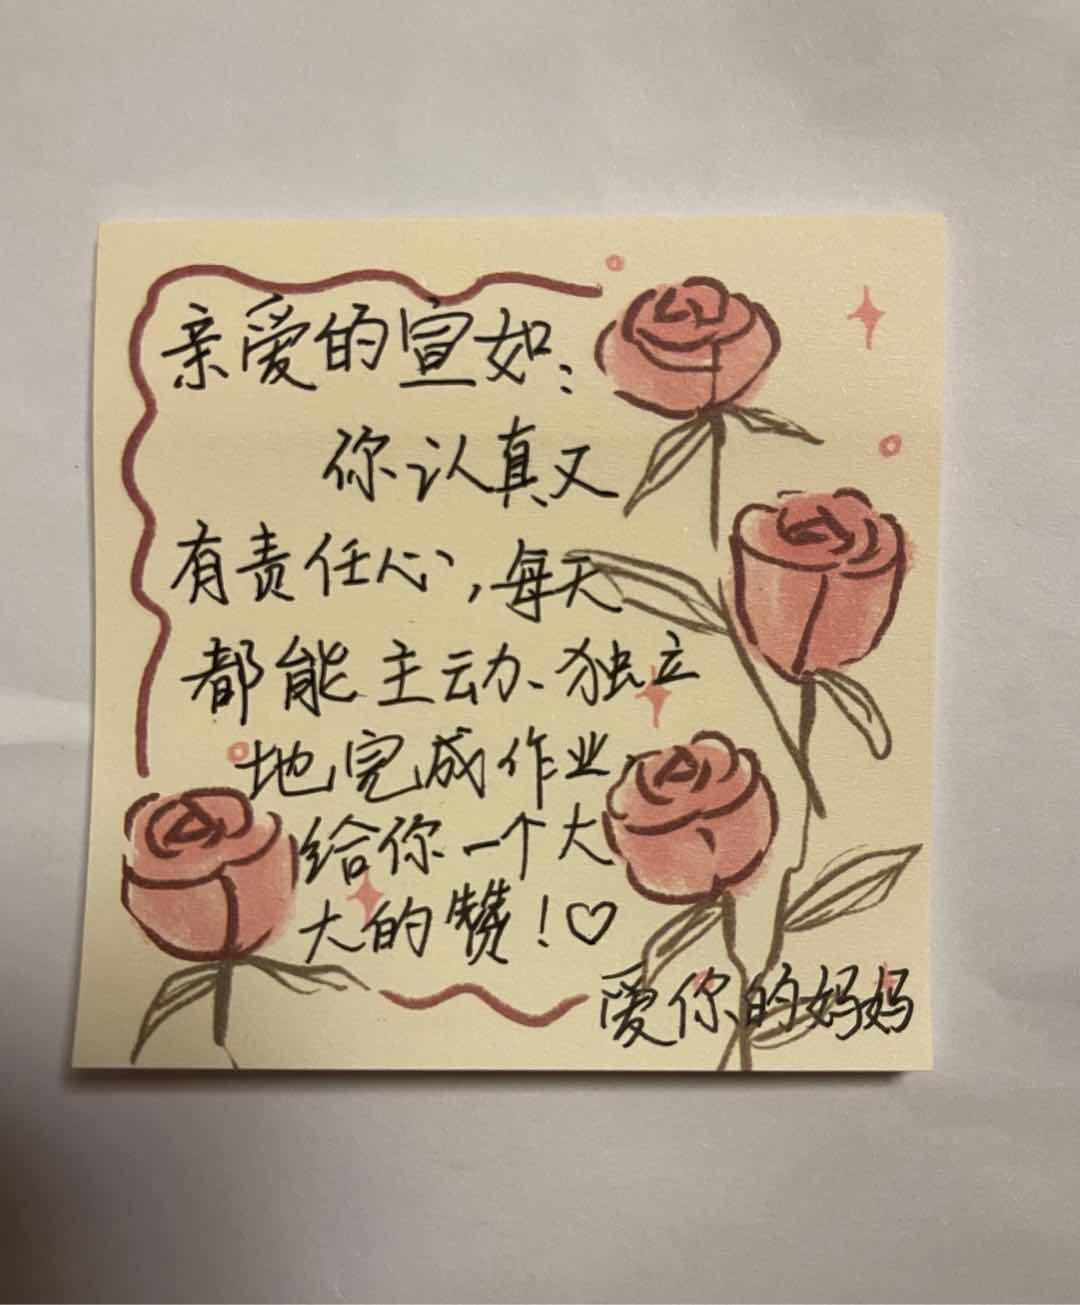 亲爱的宣如：
你认真又
有责任心，每天
都能主动、独立
地完成作业，
给你一个大
大的赞！♡
爱你的妈妈